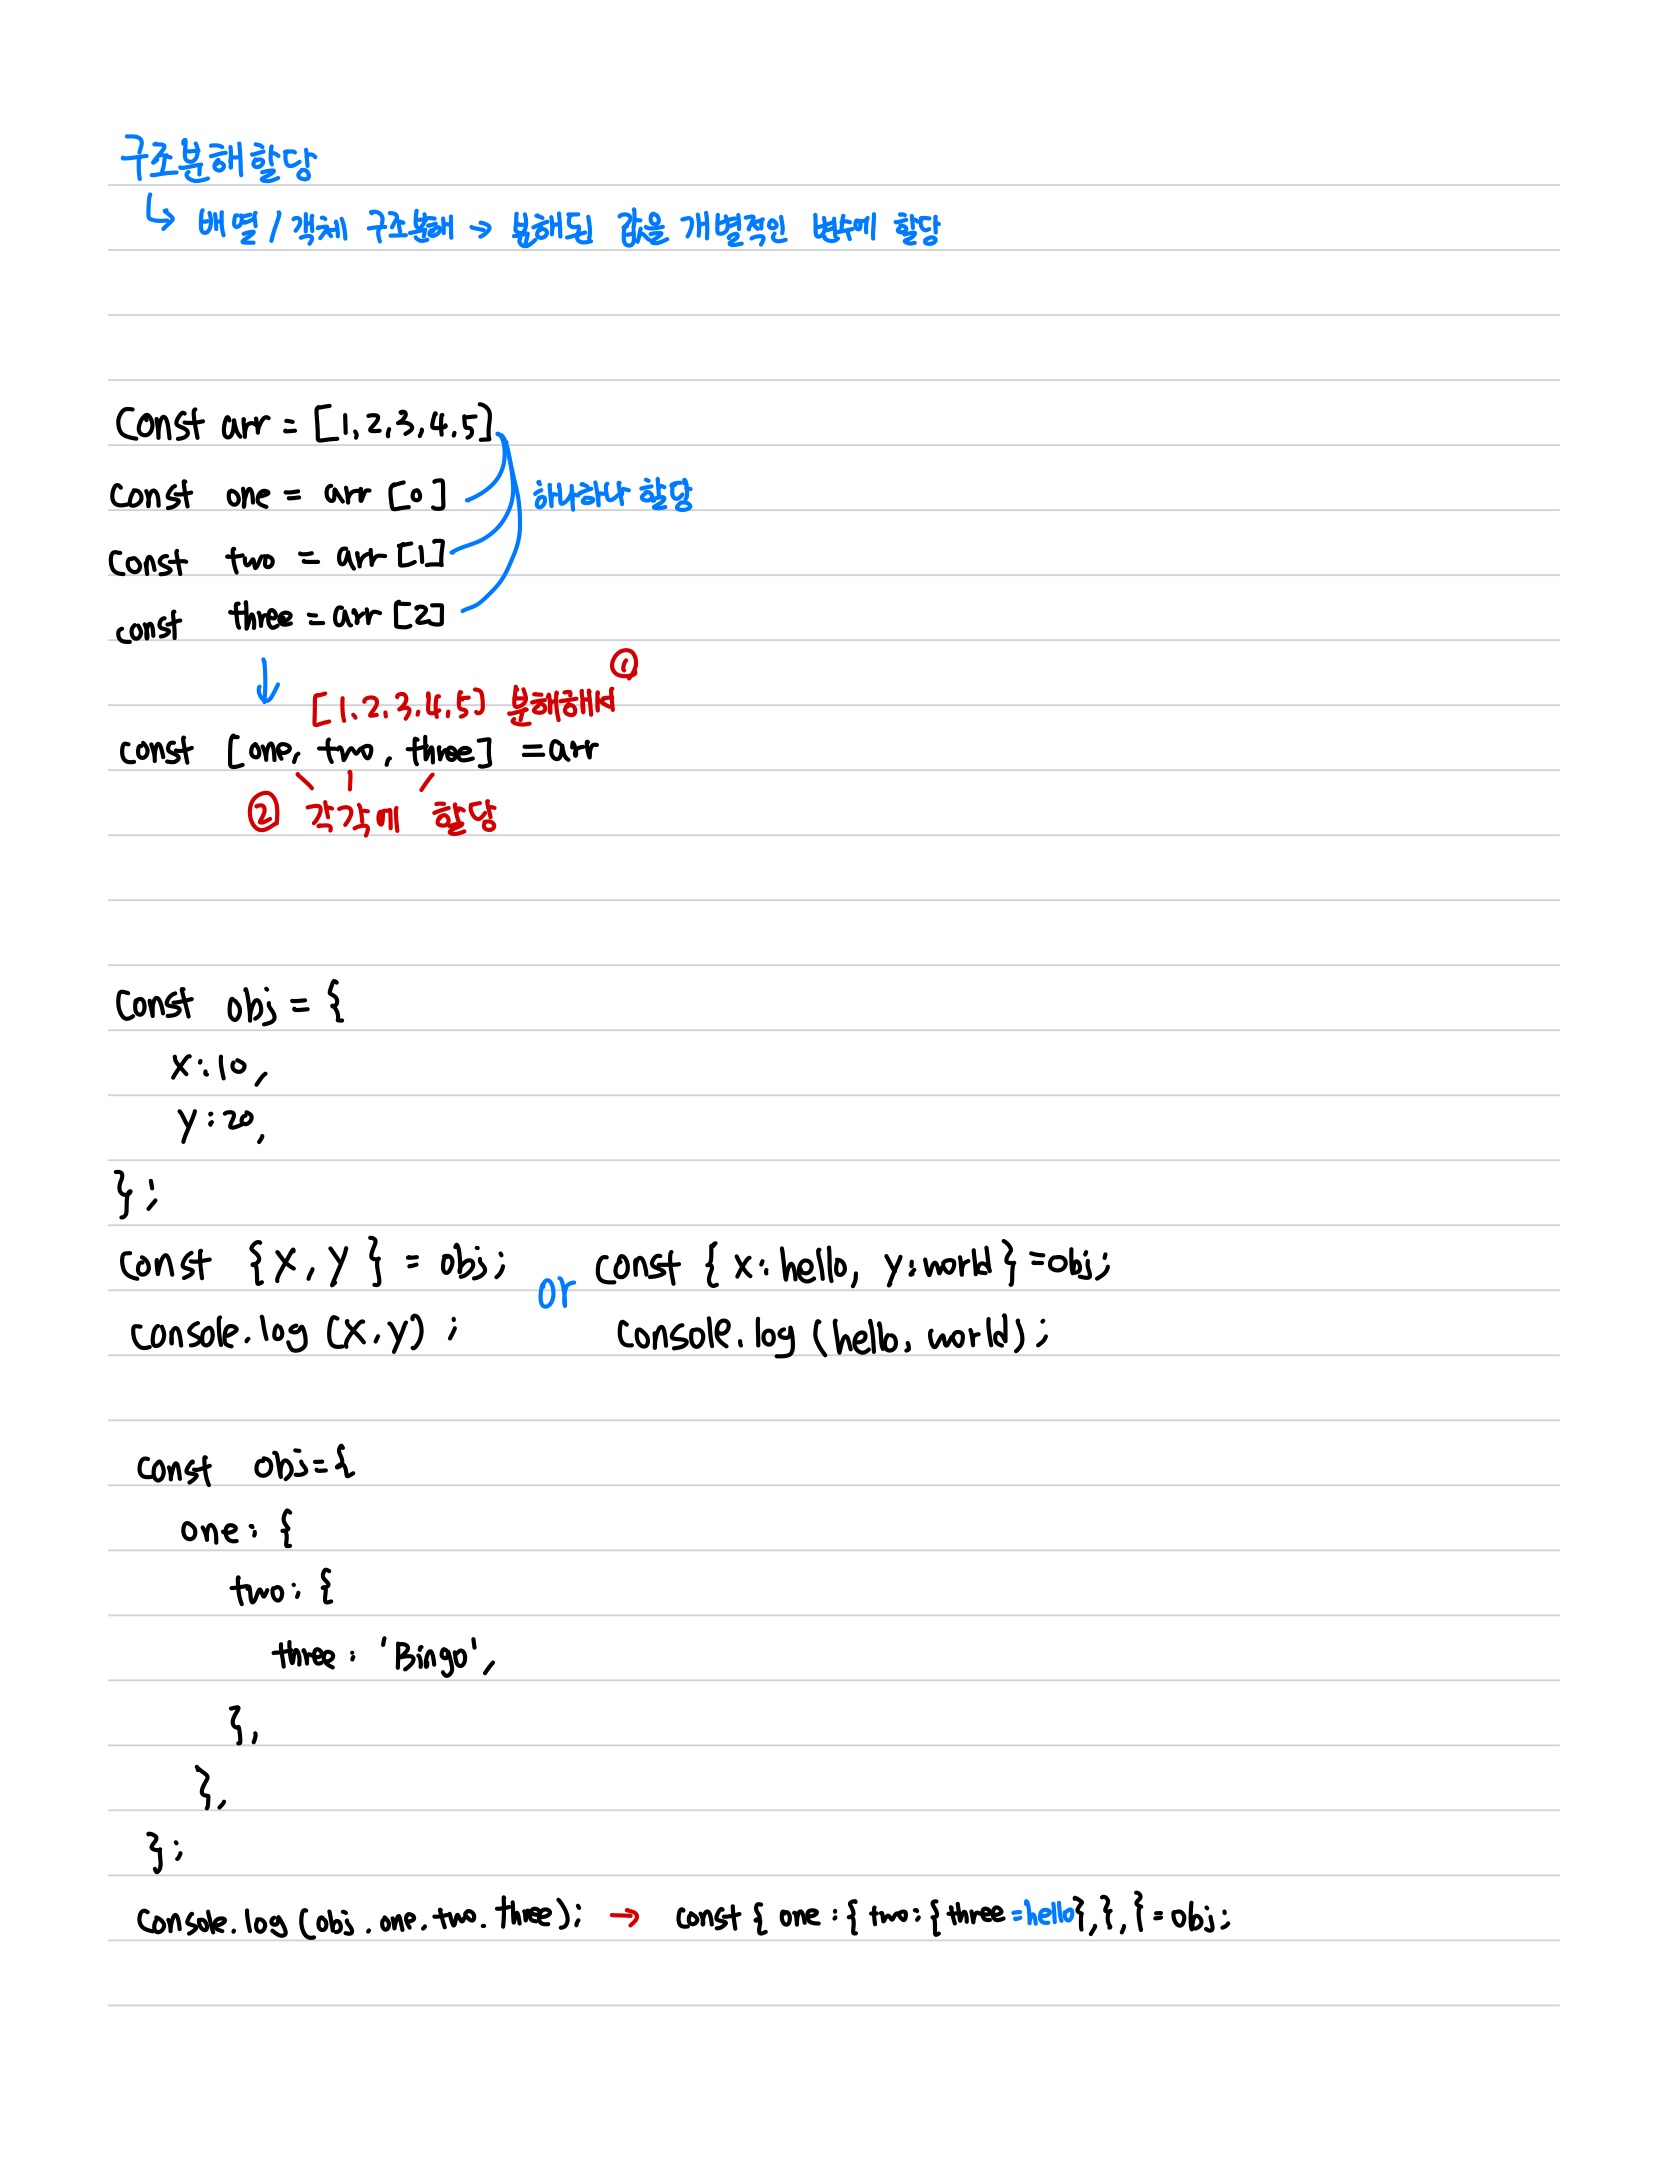 구조분해할당
↳ 배열 / 객체 구조분해 → 분해된 값을 개별적인 변수에 할당
Const arr = [1,2,3,4.5]
const one = arr [0]
하나하나 할당
const two = arr [1]
const three = arr [2]
↓
①
[1.2.3.4.5] 분해해서
const [one, two, three] = arr
② 각각에 할당
const obj = {
x:10,
y:20,
};
const {x, y} = obj; or const { x:hello, y:world } = obj;
console.log (x,y) ; console.log (hello, world);
const obj={
one: {
two: {
three: 'Bingo',
},
},
};
console.log (obj.one.two.three); → const { one : { two: { three =hello},},} = obj;